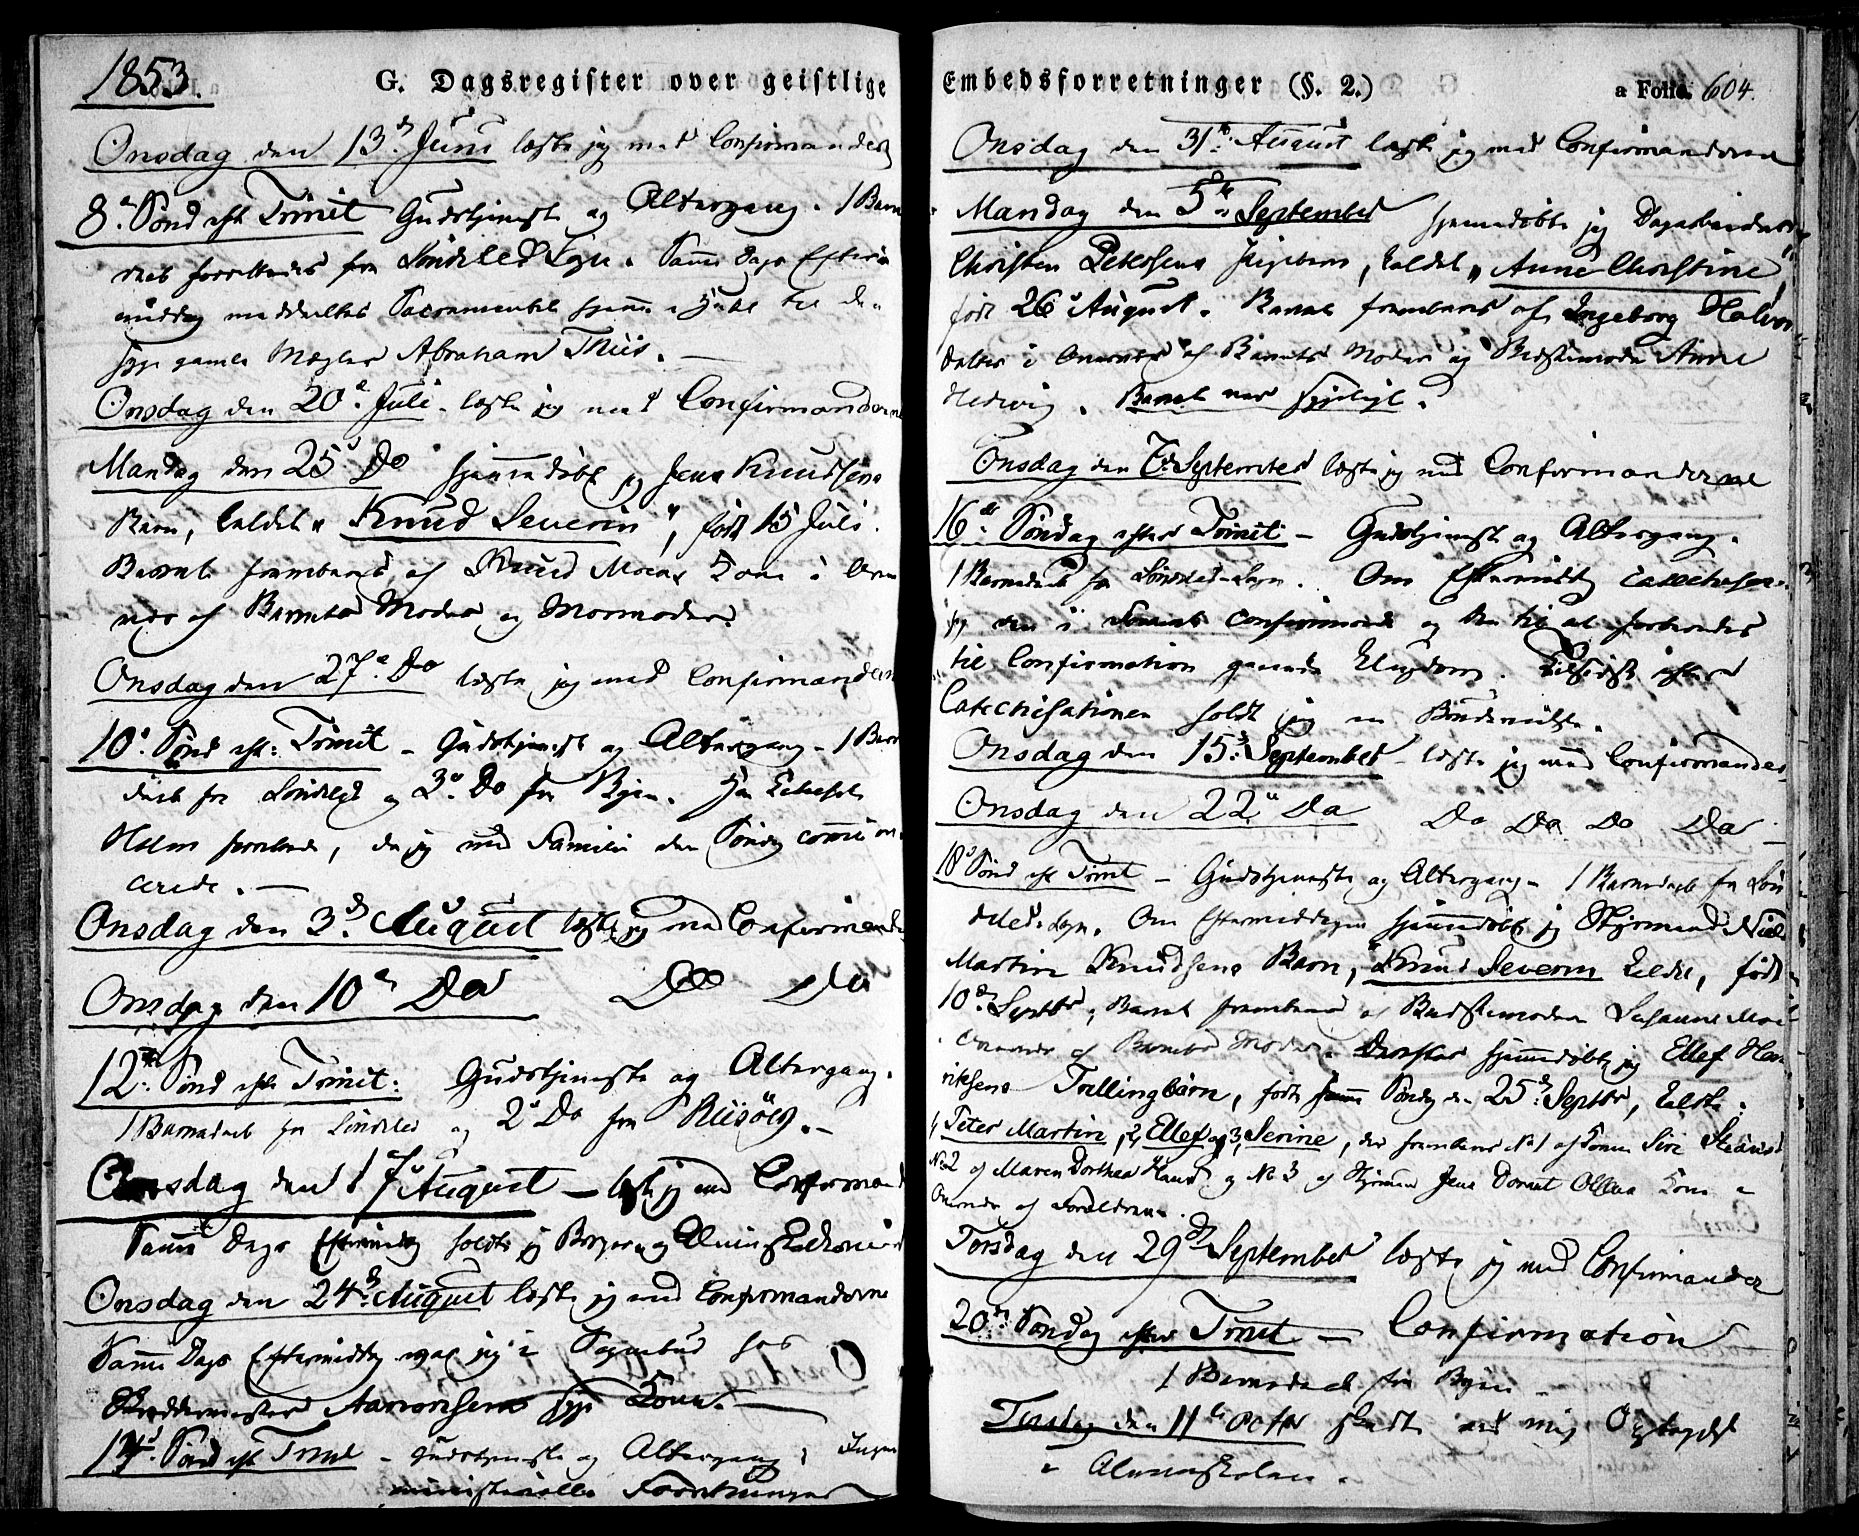 1853.
G. Dagsregister over geistlige
Onsdag den 13de Juni læste jeg med Confirmanderne
8de Sønd eft Trinit Gudstjeneste og Altergang. 1 Barne
daab forrettedes fra Søndeled Sogn. Samme Dags Efter
middag meddeeltes Sacramentet hjemme i Huset til den
syge gamle Mægler Abraham Thiis. —
Onsdag den 20de Juli. læste jeg med Confirmanderne
Mandag den 25de Do hjemmedøbt jeg Jens Knudsens
Barn, kaldet "Knud Severin", født 15 Juli.
Barnet frembares af Knud Moens Kone i Overvær
af Barnets Moder og Mormoder.
Onsdag den 27de Do læste jeg med Confirmanderne
10de Sønd eft: Trinit — Gudstjenest og Altergang — 1 Barne
daab fra Søndeled og 3de Do fra Byen.
Holm forrettede, da jeg med Familie den Søndag communi
cerede. —
Onsdag den 3de August læste jeg med Confirmande
Onsdag den 10de Do Do Do
12te Sønd eft Trinit: Gudstjeneste og Altergang.
1 Barnedaab fra Søndeled og 2de Do fra Riisöer. —
Onsdag den 17de August — læste jeg med Confirmand
Samme Dags Eftermidg holdt jeg Borger og
Onsdag den 24de August læste jeg med Confirmanderne
Samme Dags Eftermidg var jeg i Sognebud hos
Skreddermester Aamonsens syge Kone. —
13de Sønd eft Trinit — Gudstjeneste og Altergang, Ingen
ministerielle Forretninger
Embedsforretninger (§. 2.)
a Folio 604.
Onsdag den 31te August læste jeg med Confirmanderne
Mandag den 5te September hjemmedøbte jeg Dagarbeider
Christen Petersens Pigebarn, kaldet "Anne Christine"
født 26de August. Barnet frembares af Ingeborg Halvors
datter i Overvær af Barnets Moder og Bedstemoder Anne
Hedvig. Barnet var sygeligt.
Onsdag den 7de September læste jeg med Confirmanderne
16de Søndag efter Trinit — Gudstjenest og Altergang.
1 Barnedaab fra Søndeled-Sogn. Om Eftermiddag catechiser
jeg den i Confirmerede og den til at forberedes
til Confirmation gaaende Ungdom. Tilsidst efter
Catechisationen holdt jeg en
Onsdag den 15de September — læste jeg med Confirmander
Onsdag den 22de Do Do Do Do Do
18de Sønd eft Trinit — Gudstjeneste og Altergang — 1 Barnedaab fra Søn
deled-Sogn. Om Eftermiddagen hjemmedøbte jeg Styrmand Niels
Martin Knudsens Barn, "Knud Severin kaldet, født
10de Septbr, Barnet frembaaret af Bedstemoderen Susanne Moe
i Overvær af Barnets Moder. Derefter hjemmedøbte jeg Ellef Hen
riksens Trillingbørn, født samme Søndag den 25de Septbr, kaldte:
1, Peter Martin, 2, Ellef og 3, Serine, der frembares No 1 af Konen Siri
No 2 af Maren Dorthea Hans og No 3 af Styrmand Jens Ollens Kone i
Overvær af Forældrene.
Torsdag den 29de September læste jeg med Confirmander
20de Søndag efter Trinit — Confirmation
1 Barnedaab fra Byen —
Tirsdag den 11te Octbr skedte ved mig Optagelse
i Almueskolen.